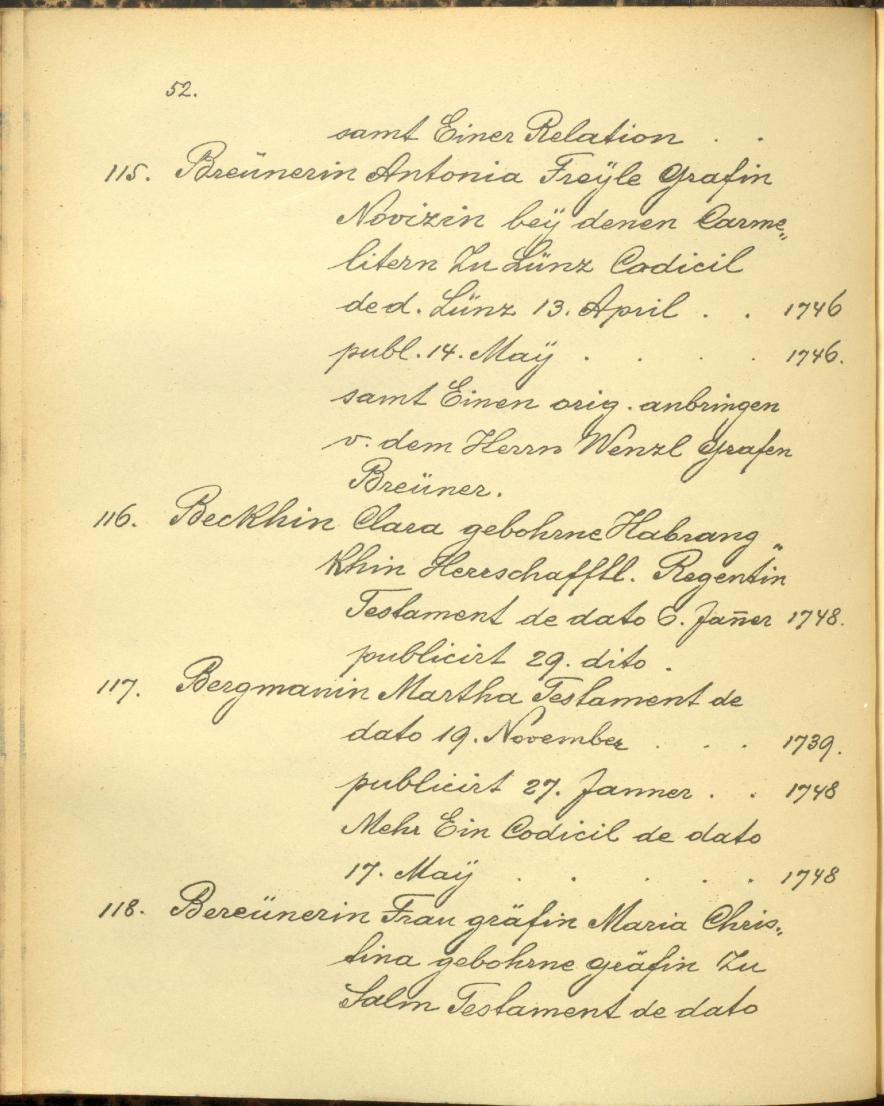 52.
samt Einer Relation . .
115. Breünerin Antonia Freÿle Grafin
Novizin beÿ denen Carme„
litern Zu Lünz Codicil
de d. Lünz 13. April . . 1746
publ. 14. Maÿ . . . . 1746.
samt Einen orig. anbringen
v. dem Herrn Wenzl Grafen
Breüner.
116. Beckhin Clara gebohrne Habrang„
khin Herrschafftl. Regentin
Testament de dato 6. Jañer 1748.
publicirt 29. dito .
117. Bergmanin Martha Testament de
dato 19. November . . . 1739.
publicirt 27. Janner . . 1748
Mehr Ein Codicil de dato
17. Maÿ . . . . . 1748
118. Bereünerin Frau gräfin Maria Chris„
tina gebohrne gräfin Zu
Salm Testament de dato